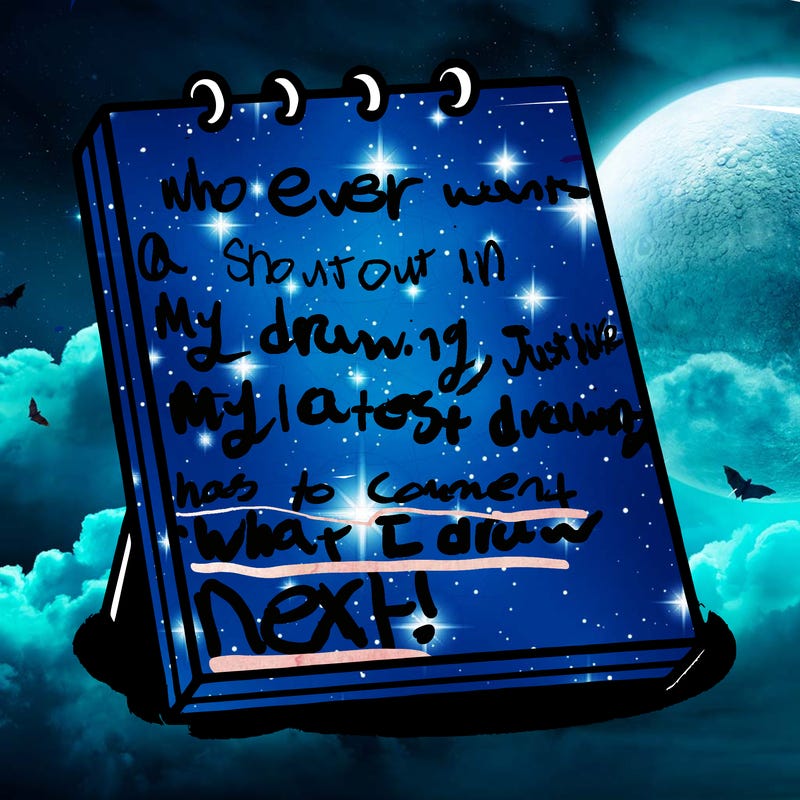 who ever wants
a shoutout in
My drawing, Just like
My latest drawing
has to comment
what I draw
next!